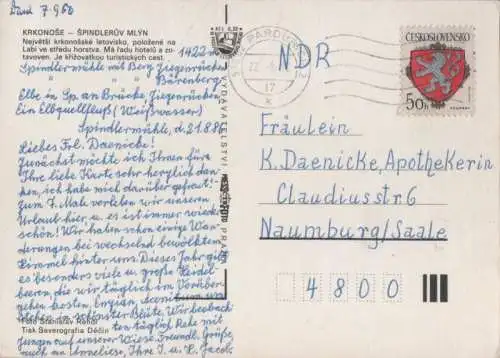 Dank 7.9.86
KRKONOŠE – ŠPINDLERŮV MLÝN
Největší krkonošské letovisko, položené na
Labi ve středu horstva. Má řadu hotelů a zo-
tavoven. Je křižovatkou turistických cest.
1422 m
Spindlermühle mit Berg Ziegenrücken
" " Bärenberg.
Elbe in Sp. an Brücke Ziegenrücken
Ein Elbquellfluß (Weißwasser)
Spindlermühle, d. 21.8.86
Liebes Frl. Daenicke!
Zunächst möchte ich Ihnen für
Ihre liebe Karte sehr herzlich dan-
ken. Ich habe mich darüber gefreut!
Zum 7. Male verleben wir unseren
Urlaub hier u. es ist immer wieder
schön! Wir haben schon einige Wan-
derungen bei wechselnd bewölktem
Himmel hinter uns. Dieses Jahr gibt
es besonders viele u. große Heidel-
beeren, die wir täglich im Vorüber-
gehen kosten. Enzian, Aconitum usw.
stehen in schönster Blüte. Wir beobach-
ten täglich Rehe mit
uns. Freundl. Grüße,
auch an Anneliese, Ihre I. u. K. Jacob.
Foto Stanislav
Tisk Severografia Děčín
PARDUBICE
22.
17
K
NDR
ČESKOSLOVENSKO
50h
Fräulein
K. Daenicke, Apothekerin
Claudiusstr. 6
Naumburg/Saale
4800